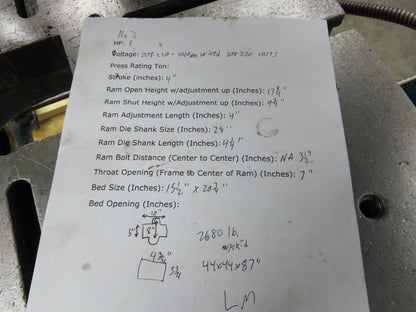 No 3
HP: 3
Voltage: 208-220-440 wired 208-220 volts
Press Rating Ton:
Stroke (inches): 4"
Ram Open Height w/adjustment up (Inches): 13 3/4"
Ram Shut Height w/Adjustment up (Inches): 9 3/4"
Ram Adjustment Length (Inches): 4"
Ram Die Shank Size (Inches):
Ram Die Shank Length (Inches): 4 1/4"
Ram Bolt Distance (Center to Center) (Inches): NA
Throat Opening (Frame to Center of Ram) (Inches): 7"
Bed Size (Inches): 15 1/2" x 20 3/4"
Bed Opening (Inches):
10"
5" 8"
2680 lb.
4 3/4" 44x44x87"
LM